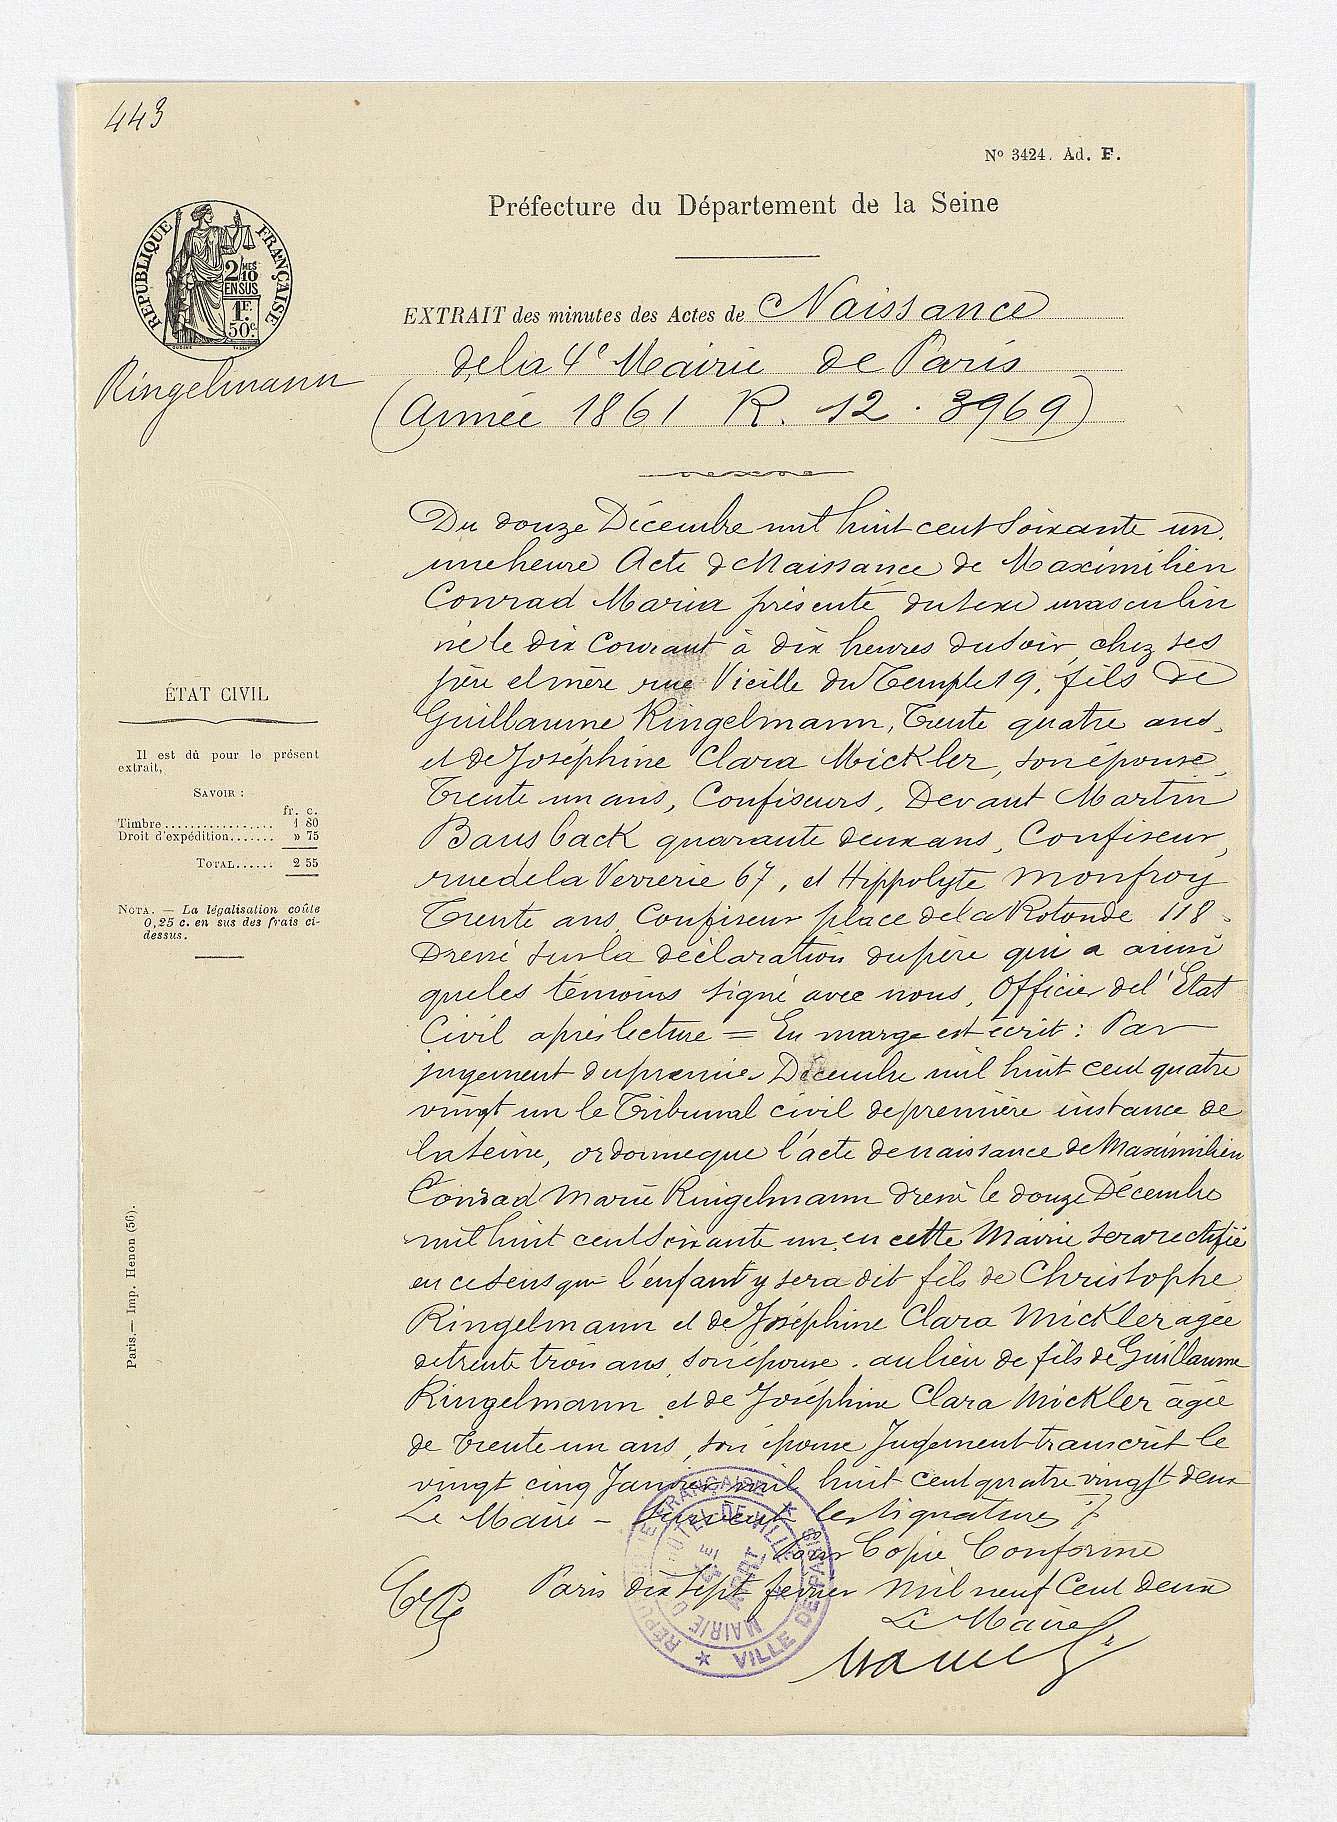 443
Nº 3424. Ad. F.
Préfecture du Département de la Seine
RÉPUBLIQUE FRANÇAISE
2/10 MES
EN SUS
1F.
50c.
EXTRAIT des minutes des Actes de Naissance
de la 4e Mairie de Paris
Ringelmann
(Année 1861 R. 12. 3969)
Du douze Décembre mil huit cent soixante un.
une heure Acte de Naissance de Maximilien
Conrad Maria présenté du sexe masculin
né le dix courant à dix heures du soir, chez ses
père et mère rue Vieille du Temple 19, fils de
Guillaume Ringelmann, Trente quatre ans,
et de Joséphine Clara Mickler, son épouse,
Trente un ans, Confiseurs, Devant Martin
Bausback quarante deux ans, Confiseur,
rue de la Verrerie 67, et Hippolyte Monfroy
Trente ans, Confiseur place de la Rotonde 118.
Dressé sur la déclaration du père qui a ainsi
que les témoins signé avec nous, Officier de l'Etat
Civil après lecture = En marge est écrit : Par
jugement du premier Décembre mil huit cent quatre
vingt un le Tribunal civil de première instance de
la Seine, ordonne que l'acte de naissance de Maximilien
Conrad Marie Ringelmann dressé le douze Décembre
mil huit cent soixante un en cette Mairie sera rectifié
en ce sens que l'enfant y sera dit fils de Christophe
Ringelmann et de Joséphine Clara Mickler agée
de trente trois ans, son épouse. au lieu de fils de Guillaume
Ringelmann et de Joséphine Clara Mickler âgée
de trente un ans, son épouse Jugement transcrit le
vingt cinq Janvier mil huit cent quatre vingt deux
Le Maire – Suivent les signatures ./.
Pour Copie Conforme
Paris dix sept fevrier mil neuf cent deux
Le Maire
ÉTAT CIVIL
Il est dû pour le présent
extrait,
SAVOIR :
fr. c.
Timbre................. 1 80
Droit d'expédition....... » 75
TOTAL...... 2 55
NOTA. — La légalisation coûte
0,25 c. en sus des frais ci-
dessus.
Paris.— Imp. Henon (56).
RÉPUBLIQUE FRANÇAISE
VILLE DE PARIS
MAIRIE DE L'HÔTEL DE VILLE
4E ARRT